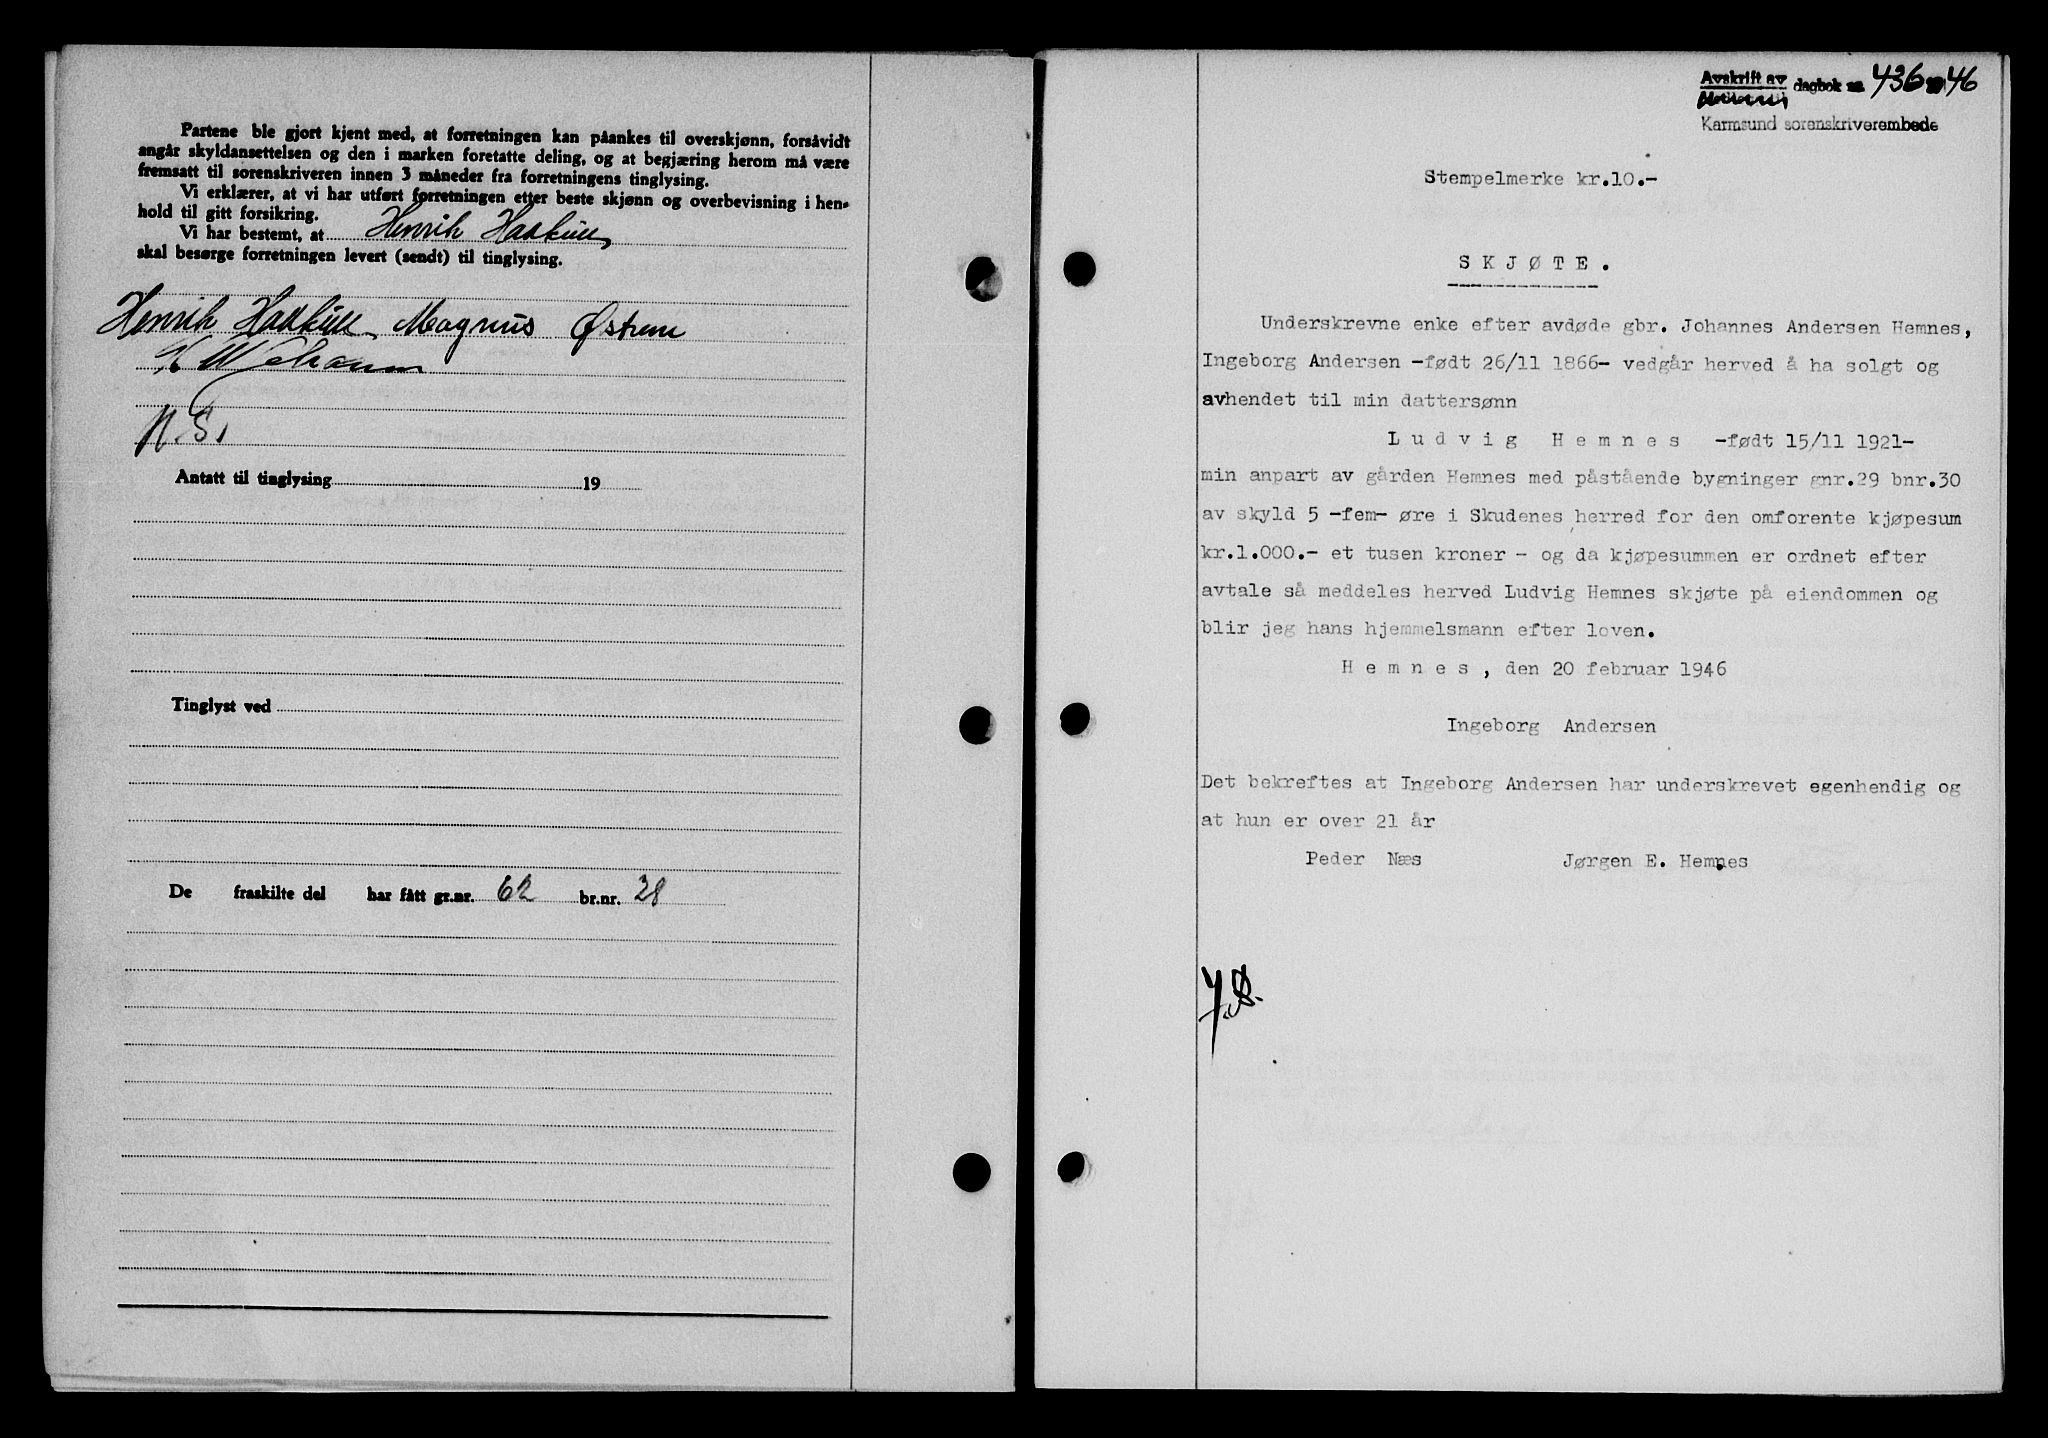 Partene ble gjort kjent med, at forretningen kan påankes til overskjønn, forsåvidt
angår skyldansettelsen og den i marken foretatte deling, og at begjæring herom må være
fremsatt til sorenskriveren innen 3 måneder fra forretningens tinglysing.
Vi erklærer, at vi har utført forretningen etter beste skjønn og overbevisning i hen-
hold til gitt forsikring.
Vi har bestemt, at Henrik
skal besørge forretningen levert (sendt) til tinglysing.
Henrik Magnus Østrem
N.S.
Antatt til tinglysing 19
Tinglyst ved
De fraskilte del har fått gr.nr. 62 br.nr. 28
Avskrift av dagbok nr. 436 46
Karmsund sorenskriverembede
Stempelmerke kr.10.-
SKJØTE.
Underskrevne enke efter avdøde gbr. Johannes Andersen Hemnes,
Ingeborg Andersen -født 26/11 1866- vedgår herved å ha solgt og
avhendet til min dattersønn
Ludvig Hemnes -født 15/11 1921-
min anpart av gården Hemnes med påstående bygninger gnr.29 bnr.30
av skyld 5 -fem- øre i Skudenes herred for den omforente kjøpesum
kr.1.000.- et tusen kroner - og da kjøpesummen er ordnet efter
avtale så meddeles herved Ludvig Hemnes skjøte på eiendommen og
blir jeg hans hjemmelsmann efter loven.
Hemnes, den 20 februar 1946
Ingeborg Andersen
Det bekreftes at Ingeborg Andersen har underskrevet egenhendig og
at hun er over 21 år
Peder Næs Jørgen E. Hemnes